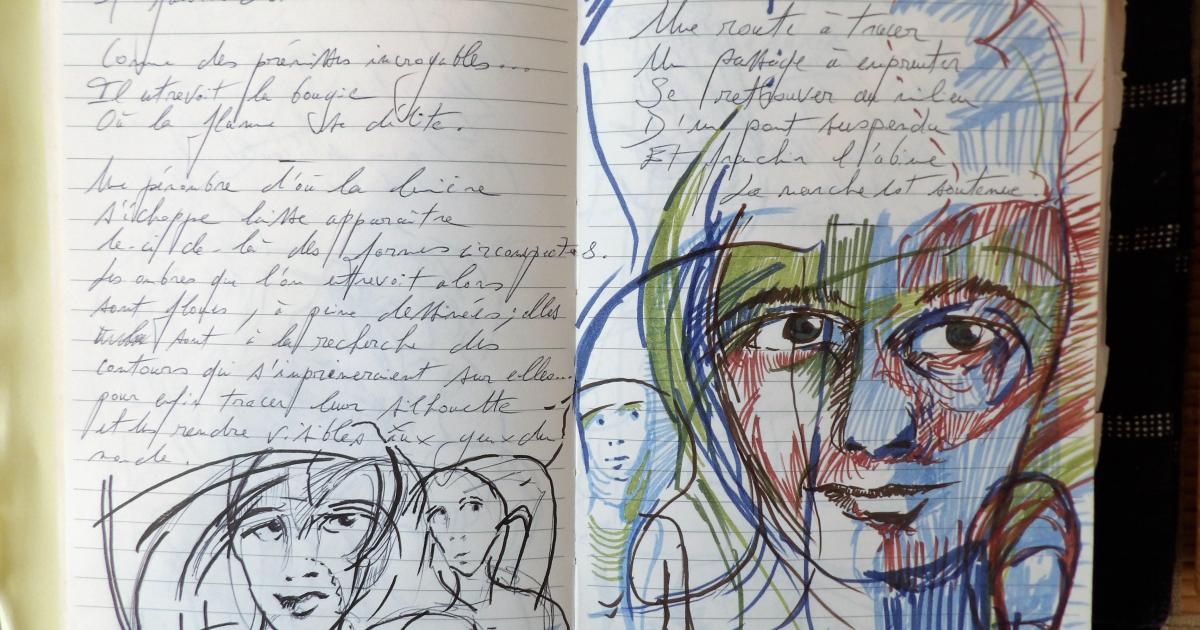 Comme des prémisses incroyables...
Il entrevoit la bougie
Où la flamme se délite.
Une pénombre d'où la lumière
s'échappe laisse apparaître
de-ci de-là des formes
Les ombres que l'on entrevoit alors
sont floues, à peine dessinées; elles
sont à la recherche des
contours qui s'imprimeraient sur elles...
pour enfin tracer leur silhouette
et les rendre visibles aux yeux du
monde.
Une route à tracer
Un passage à emprunter
Se retrouver au milieu
D'un pont suspendu
Et franchir l'abîme
La marche est soutenue.